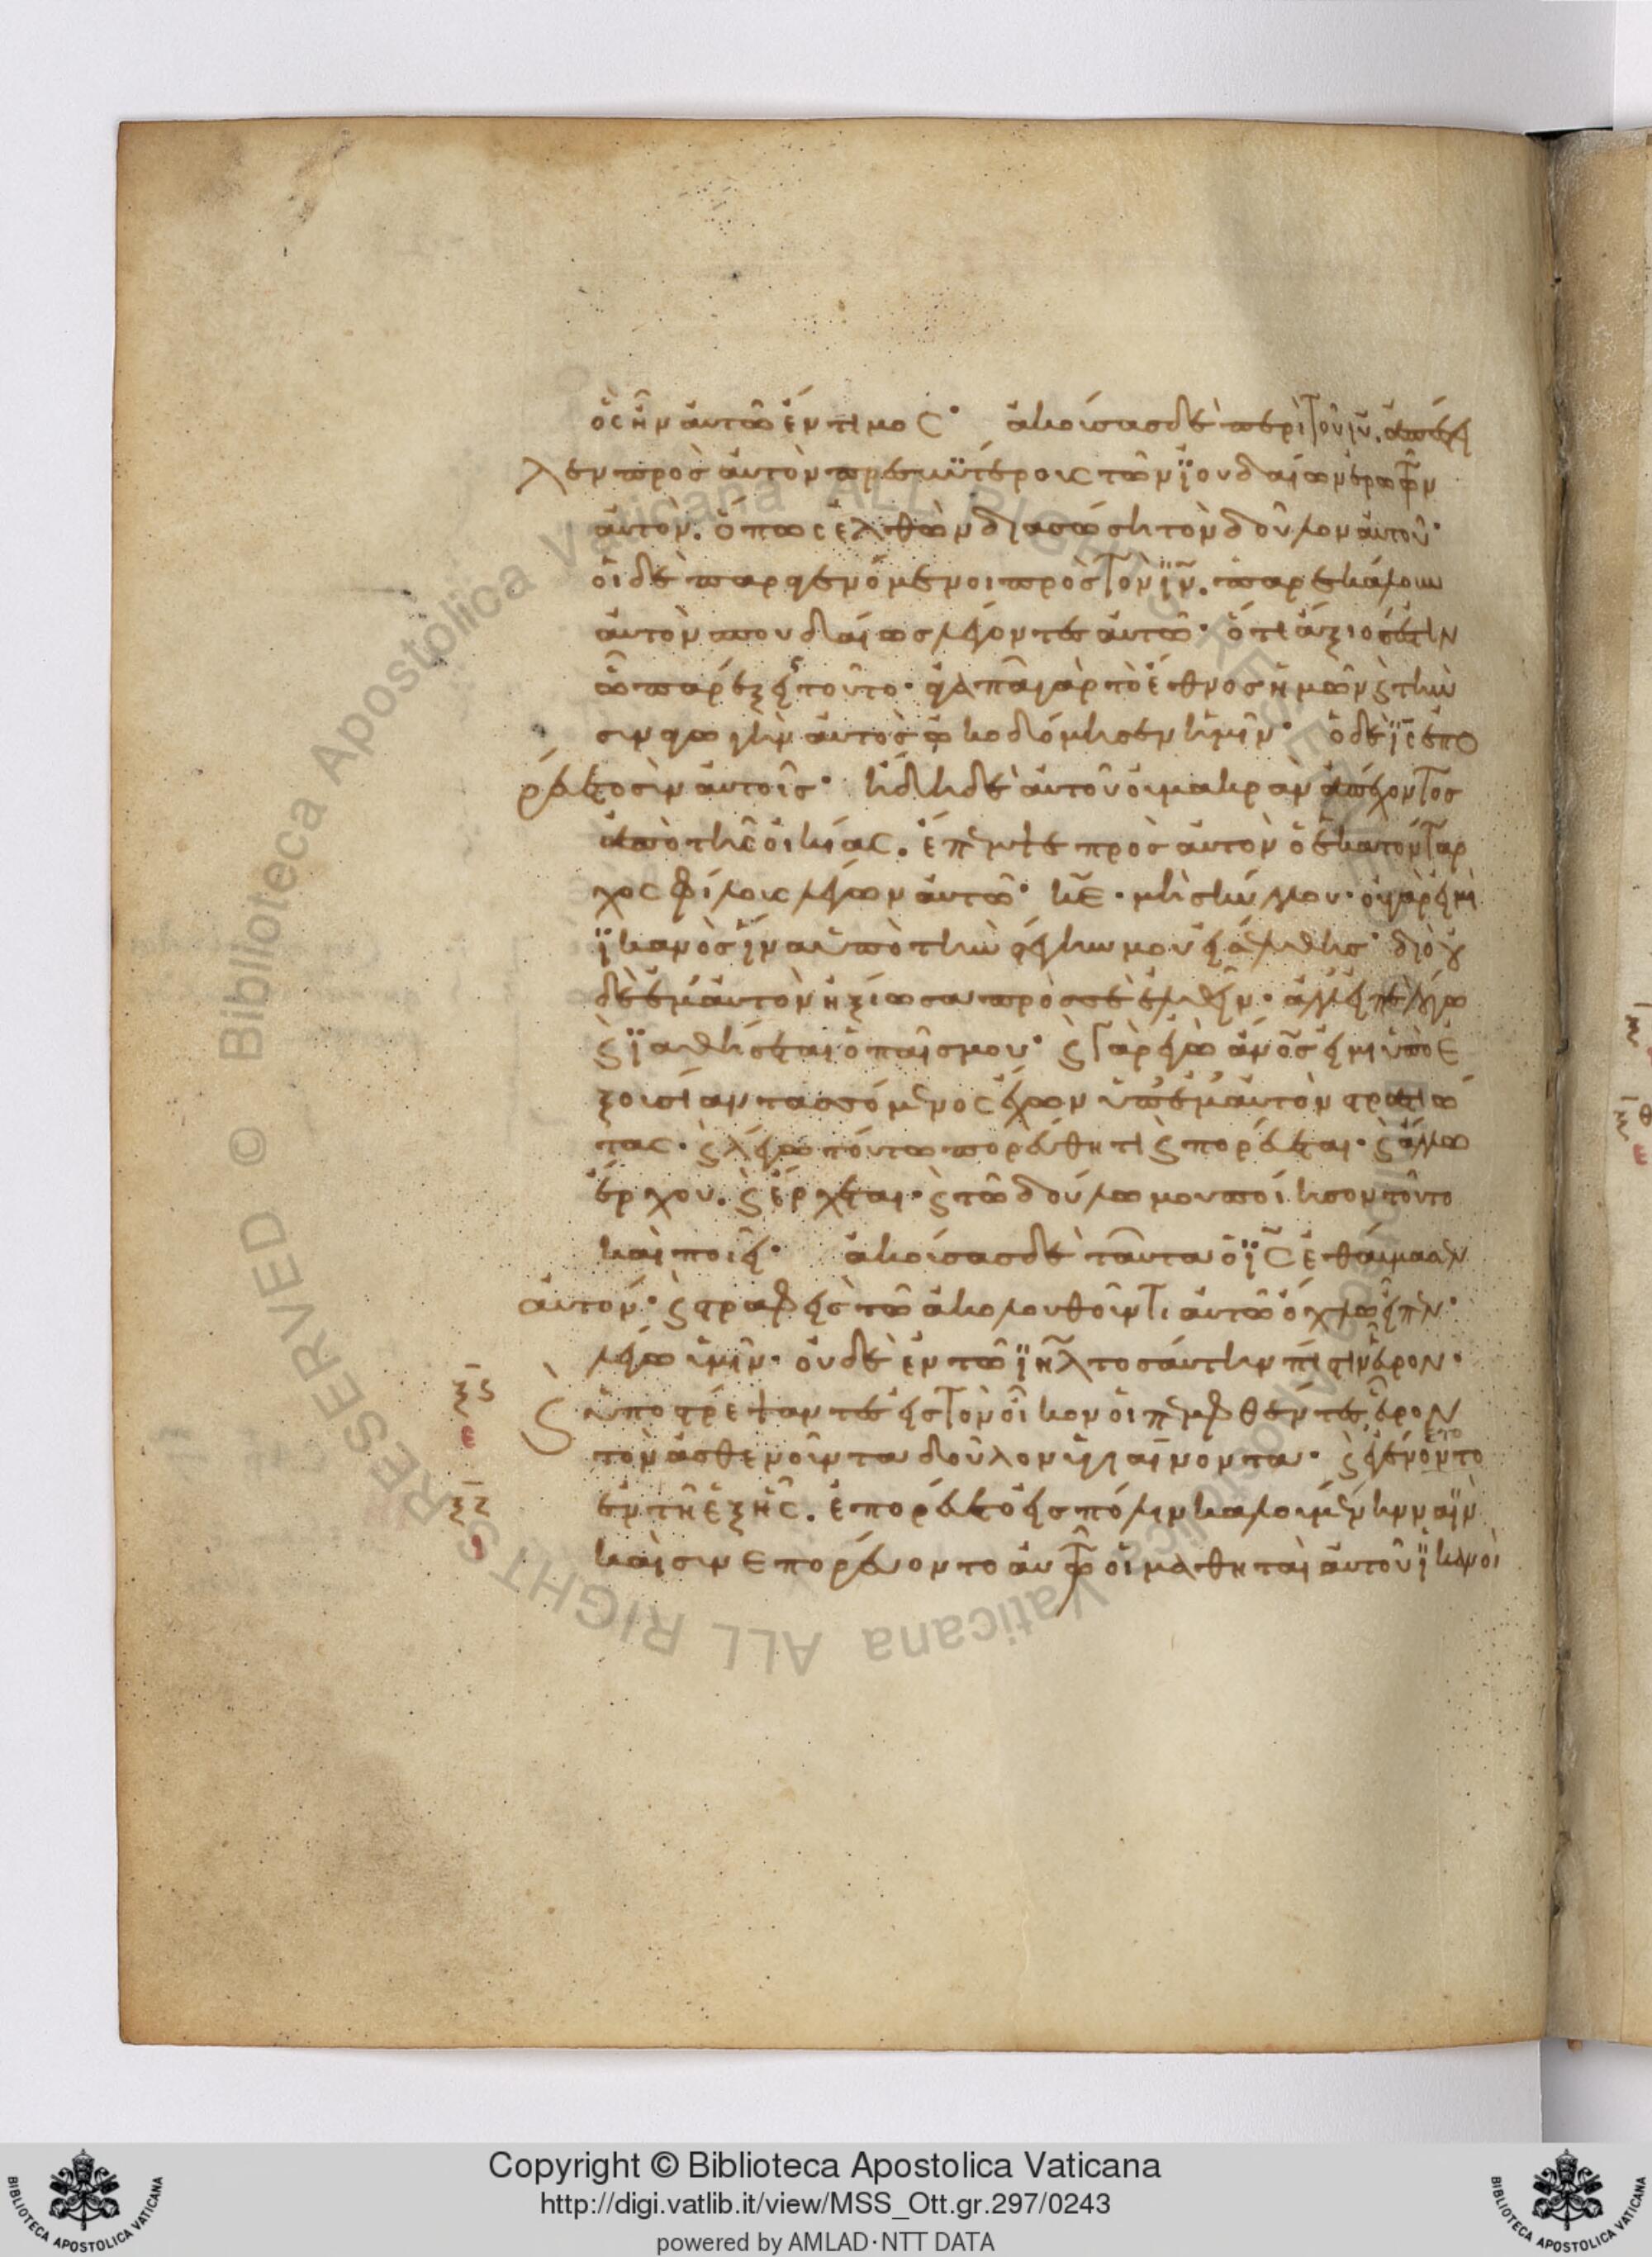 ὃς ἦν αὐτῶ ἔντιμος· ἀκούσας δὲ περὶ τοῦ ιυ. ἀπέστει
λεν πρὸς αὐτὸν πρεσβυτέρους τῶν ϊουδαίων ἐρωτῶν
αὐτὸν. ὅπως ἐλθὼν διασώση τὸν δοῦλον αὐτοῦ·
οἱ δὲ παραγενόμενοι πρὸς τὸν ιν. παρεκάλουν
αὐτὸν σπουδαίως λέγοντες αὐτῶ· ὅτι ἄξιος ἐστιν
ὧ παρέξει τοῦτο· ἀγαπᾶ γὰρ τὸ ἔθνος ἡμῶν ϗ τὴν
συναγωγὴν αὐτὸς ὠκοδόμησεν ἡμῖν· ὁ δὲ ις ἐπο
ρεύετο σὺν αὐτοῖς· ἤδη δὲ αὐτοῦ οὐ μακρὰν ἀπέχοντος
ἀπὸ τῆς οἰκίας. ἔπεμψε πρὸς αὐτὸν ὁ ἑκατόνταρ
χος φίλους λέγων αὐτῶ· κε· μὴ σκύλλου· οὐ γάρ εἰμι
ϊκανὸς ἵνα ὑπὸ τὴν στέγην μου εἰσέλθης· διὸ οὐ
δὲ ἐμαυτὸν ἠξίωσα πρὸς σὲ ἐλθεῖν· ἀλλ' εἰπὲ λόγω
ϗ ϊαθήσεται ὁ παῖς μου· ϗ γὰρ ἐγὼ ανος εἰμι ὑπὸ ἐ
ξουσίαν τασσόμενος ἔχων ὑπ' ἐμαυτὸν στρατιώ
τας· ϗ λέγω τούτω πορεύθητι ϗ πορεύεται· ϗ ἄλλω
ἔρχου. ϗ ἔρχεται· ϗ τῶ δούλω μου ποίησον τοῦτο
καὶ ποιεῖ· ἀκούσας δὲ ταῦτα ὁ ις ἐθαύμασεν
αὐτόν· ϗ στραφεὶς τῶ ἀκολουθοῦντι αὐτῶ ὄχλω εἶπεν·
λέγω ὑμῖν· οὐδὲ ἐν τῶ ιηλ τοσαύτην πίστιν εὗρον·
ξϛ ϗ ὑποστρέψαντες εἰς τὸν οἶκον οἱ πεμφθέντες εὗρον
ε τὸν ἀσθενοῦντα δοῦλον ὑγιαίνοντα· ϗ ἐγένοντο ετο
ξζ ἐν τῆ ἑξῆς. ἐπορεύετο εἰς πόλιν καλουμένην ναϊν
ι καὶ συνεπορεύοντο αὐτῶ οἱ μαθηταὶ αὐτοῦ ϊκανοὶ
Copyright © Biblioteca Apostolica Vaticana
http://digi.vatlib.it/view/MSS_Ott.gr.297/0243
powered by AMLAD·NTT DATA
BIBLIOTECA APOSTOLICA VATICANA
BIBLIOTECA APOSTOLICA VATICANA
© Biblioteca Apostolica Vaticana ALL RIGHTS RESERVED